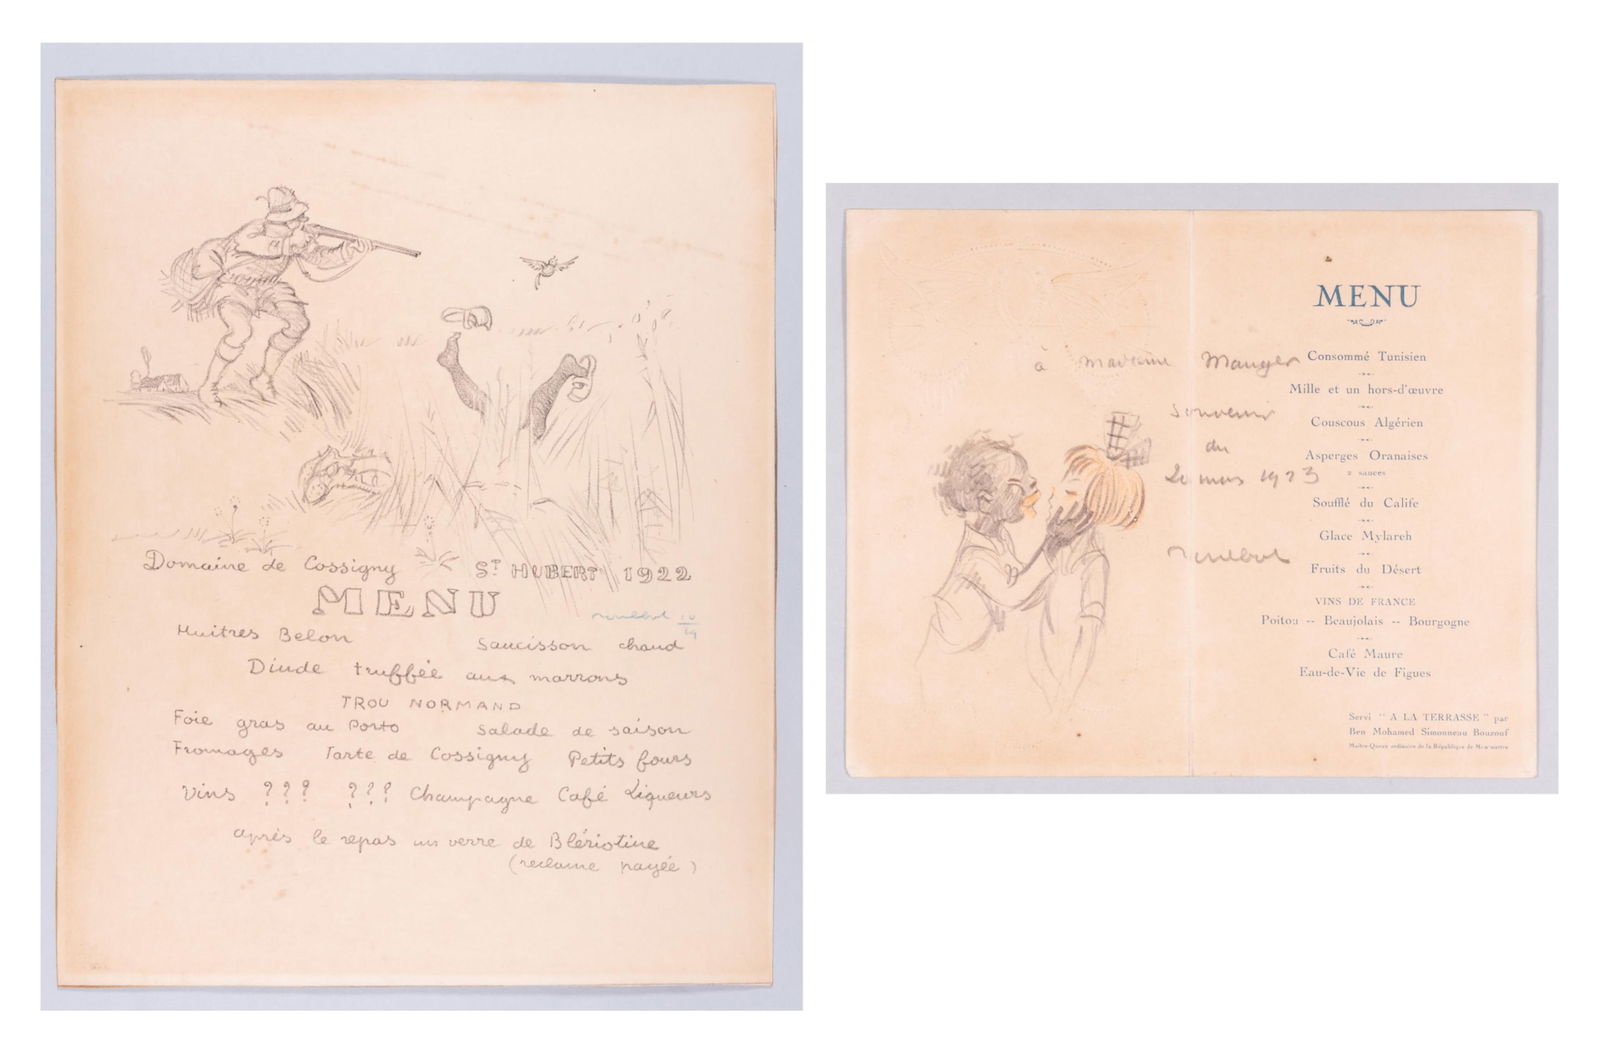 Domaine de Cossigny
St HUBERT 1922
MENU
Huitres Belon
Saucisson chaud
Dinde truffée aux marrons
TROU NORMAND
Foie gras au Porto
Salade de saison
Fromages Tarte de Cossigny Petits fours
Vins ??? ??? Champagne Café Liqueurs
après le repas un verre de Blériotine
(reclame payée)
à madame Manger
souvenir
du
20 mars 1923
MENU
Consommé Tunisien
Mille et un hors-d'œuvre
Couscous Algérien
Asperges Oranaises
2 sauces
Soufflé du Calife
Glace Mylareh
Fruits du Désert
VINS DE FRANCE
Poitou -- Beaujolais -- Bourgogne
Café Maure
Eau-de-Vie de Figues
Servi " A LA TERRASSE " par
Ben Mohamed Simonneau Bouzouf